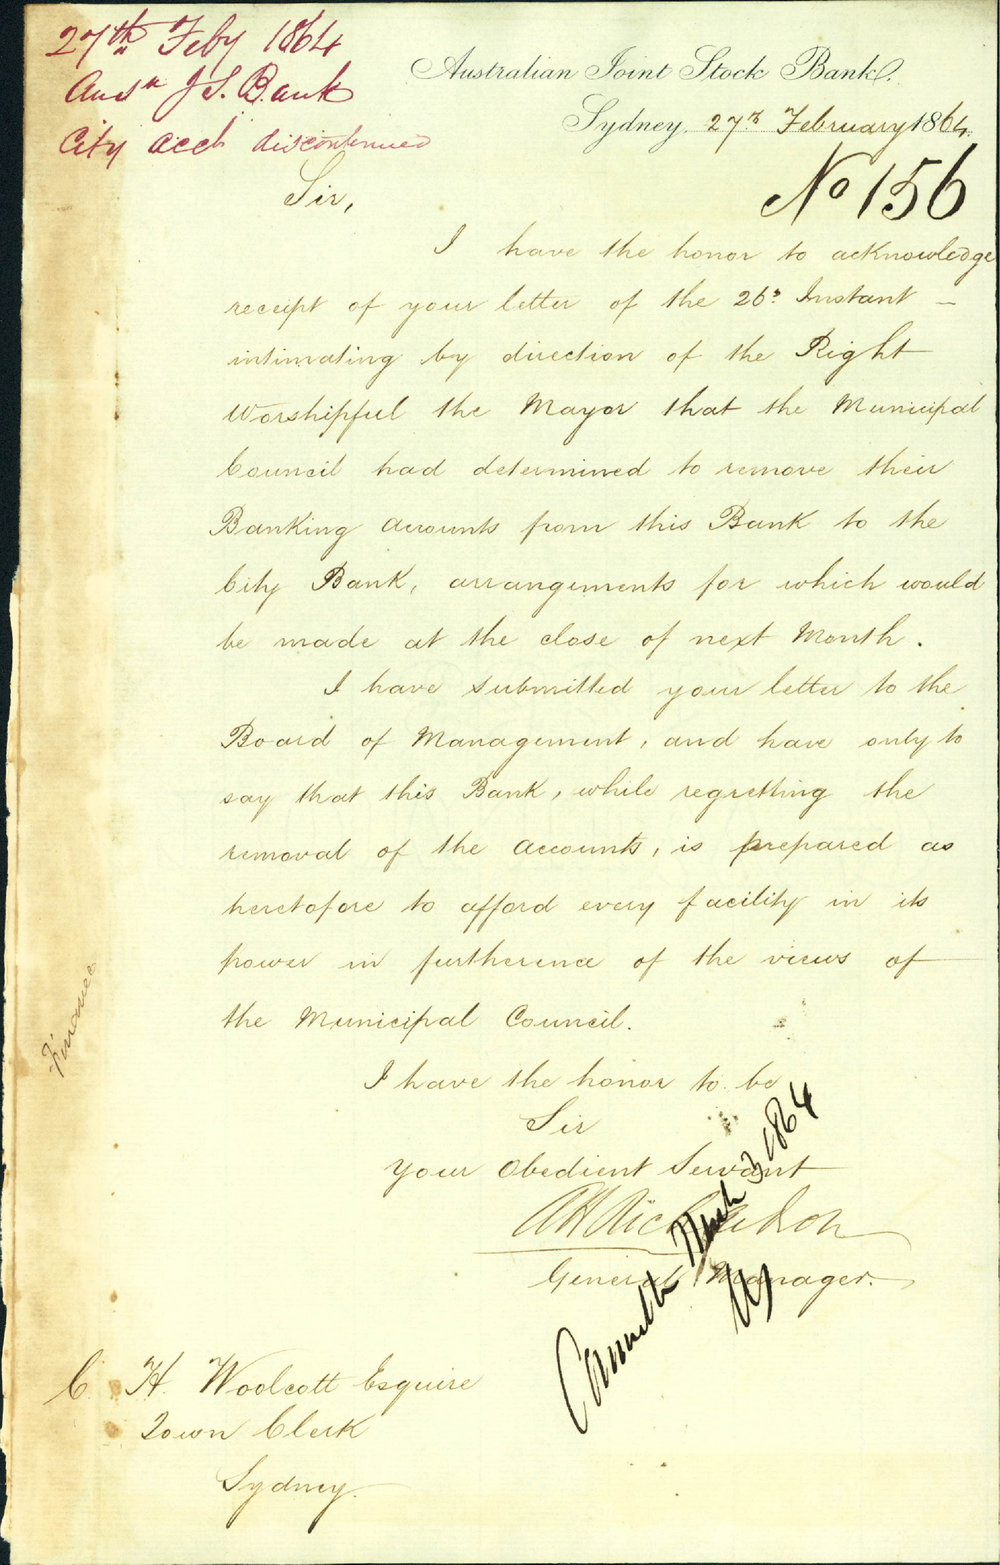 27th Feby 1864
Ausn J. S. Bank
City acct discontinued
Australian Joint Stock Bank.
Sydney, 27th February 1864
No 156
Sir,
I have the honor to acknowledge
receipt of your letter of the 26th Instant —
intimating by direction of the Right
Worshipful the Mayor that the Municipal
Council had determined to remove their
Banking accounts from this Bank to the
City Bank, arrangements for which would
be made at the close of next Month.
I have submitted your letter to the
Board of Management, and have only to
say that this Bank, while regretting the
removal of the accounts, is prepared as
heretofore to afford every facility in its
power in furtherence of the views of
the Municipal Council.
Finance
I have the honor to be
Sir
Your Obedient Servant
A H Richardson
General Manager.
March 3 1864
C. H. Woolcott Esquire
Town Clerk
Sydney.